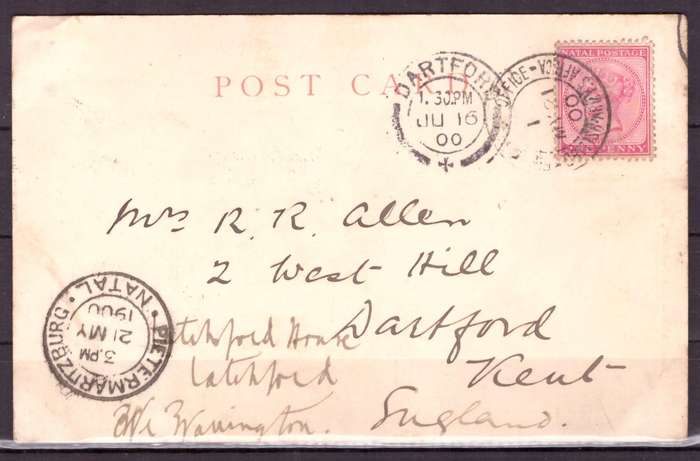 POST CARD
DARTFORD
1.30PM
JU 16
00
NATAL POSTAGE
PENNY
OFFICE
S. AFRICA
21
00
Mrs R. R. Allen
2 West Hill
Dartford
Kent
England.
Latchford House
Latchford
Warrington.
PIETERMARITZBURG · NATAL ·
3.PM
21 MY
1900